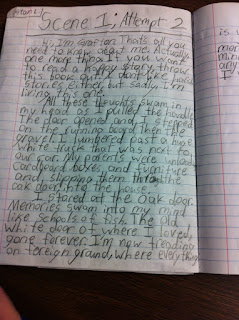 Scene 1: Attempt 2
Hi, I'm Grafton. That's all you
need to know about me. Actually,
one more thing. If you want
to read a happy story, throw
this book out. I don't like happy
stories either, but sadly, I'm
living this one.
All these thoughts swam in
my head as I pulled the handle.
The door opened and I stepped
on the running board then the
gravel. I lumbered past a huge
white truck that was next to
our car. My parents were unloading
cardboard boxes, and furniture
and slipping them through the
oak door, into the house.
I stared at the oak door.
Memories swam into my mind
like schools of fish. The old
white door of where I loved,
gone forever. I'm now treading
on foreign ground, where everything
is